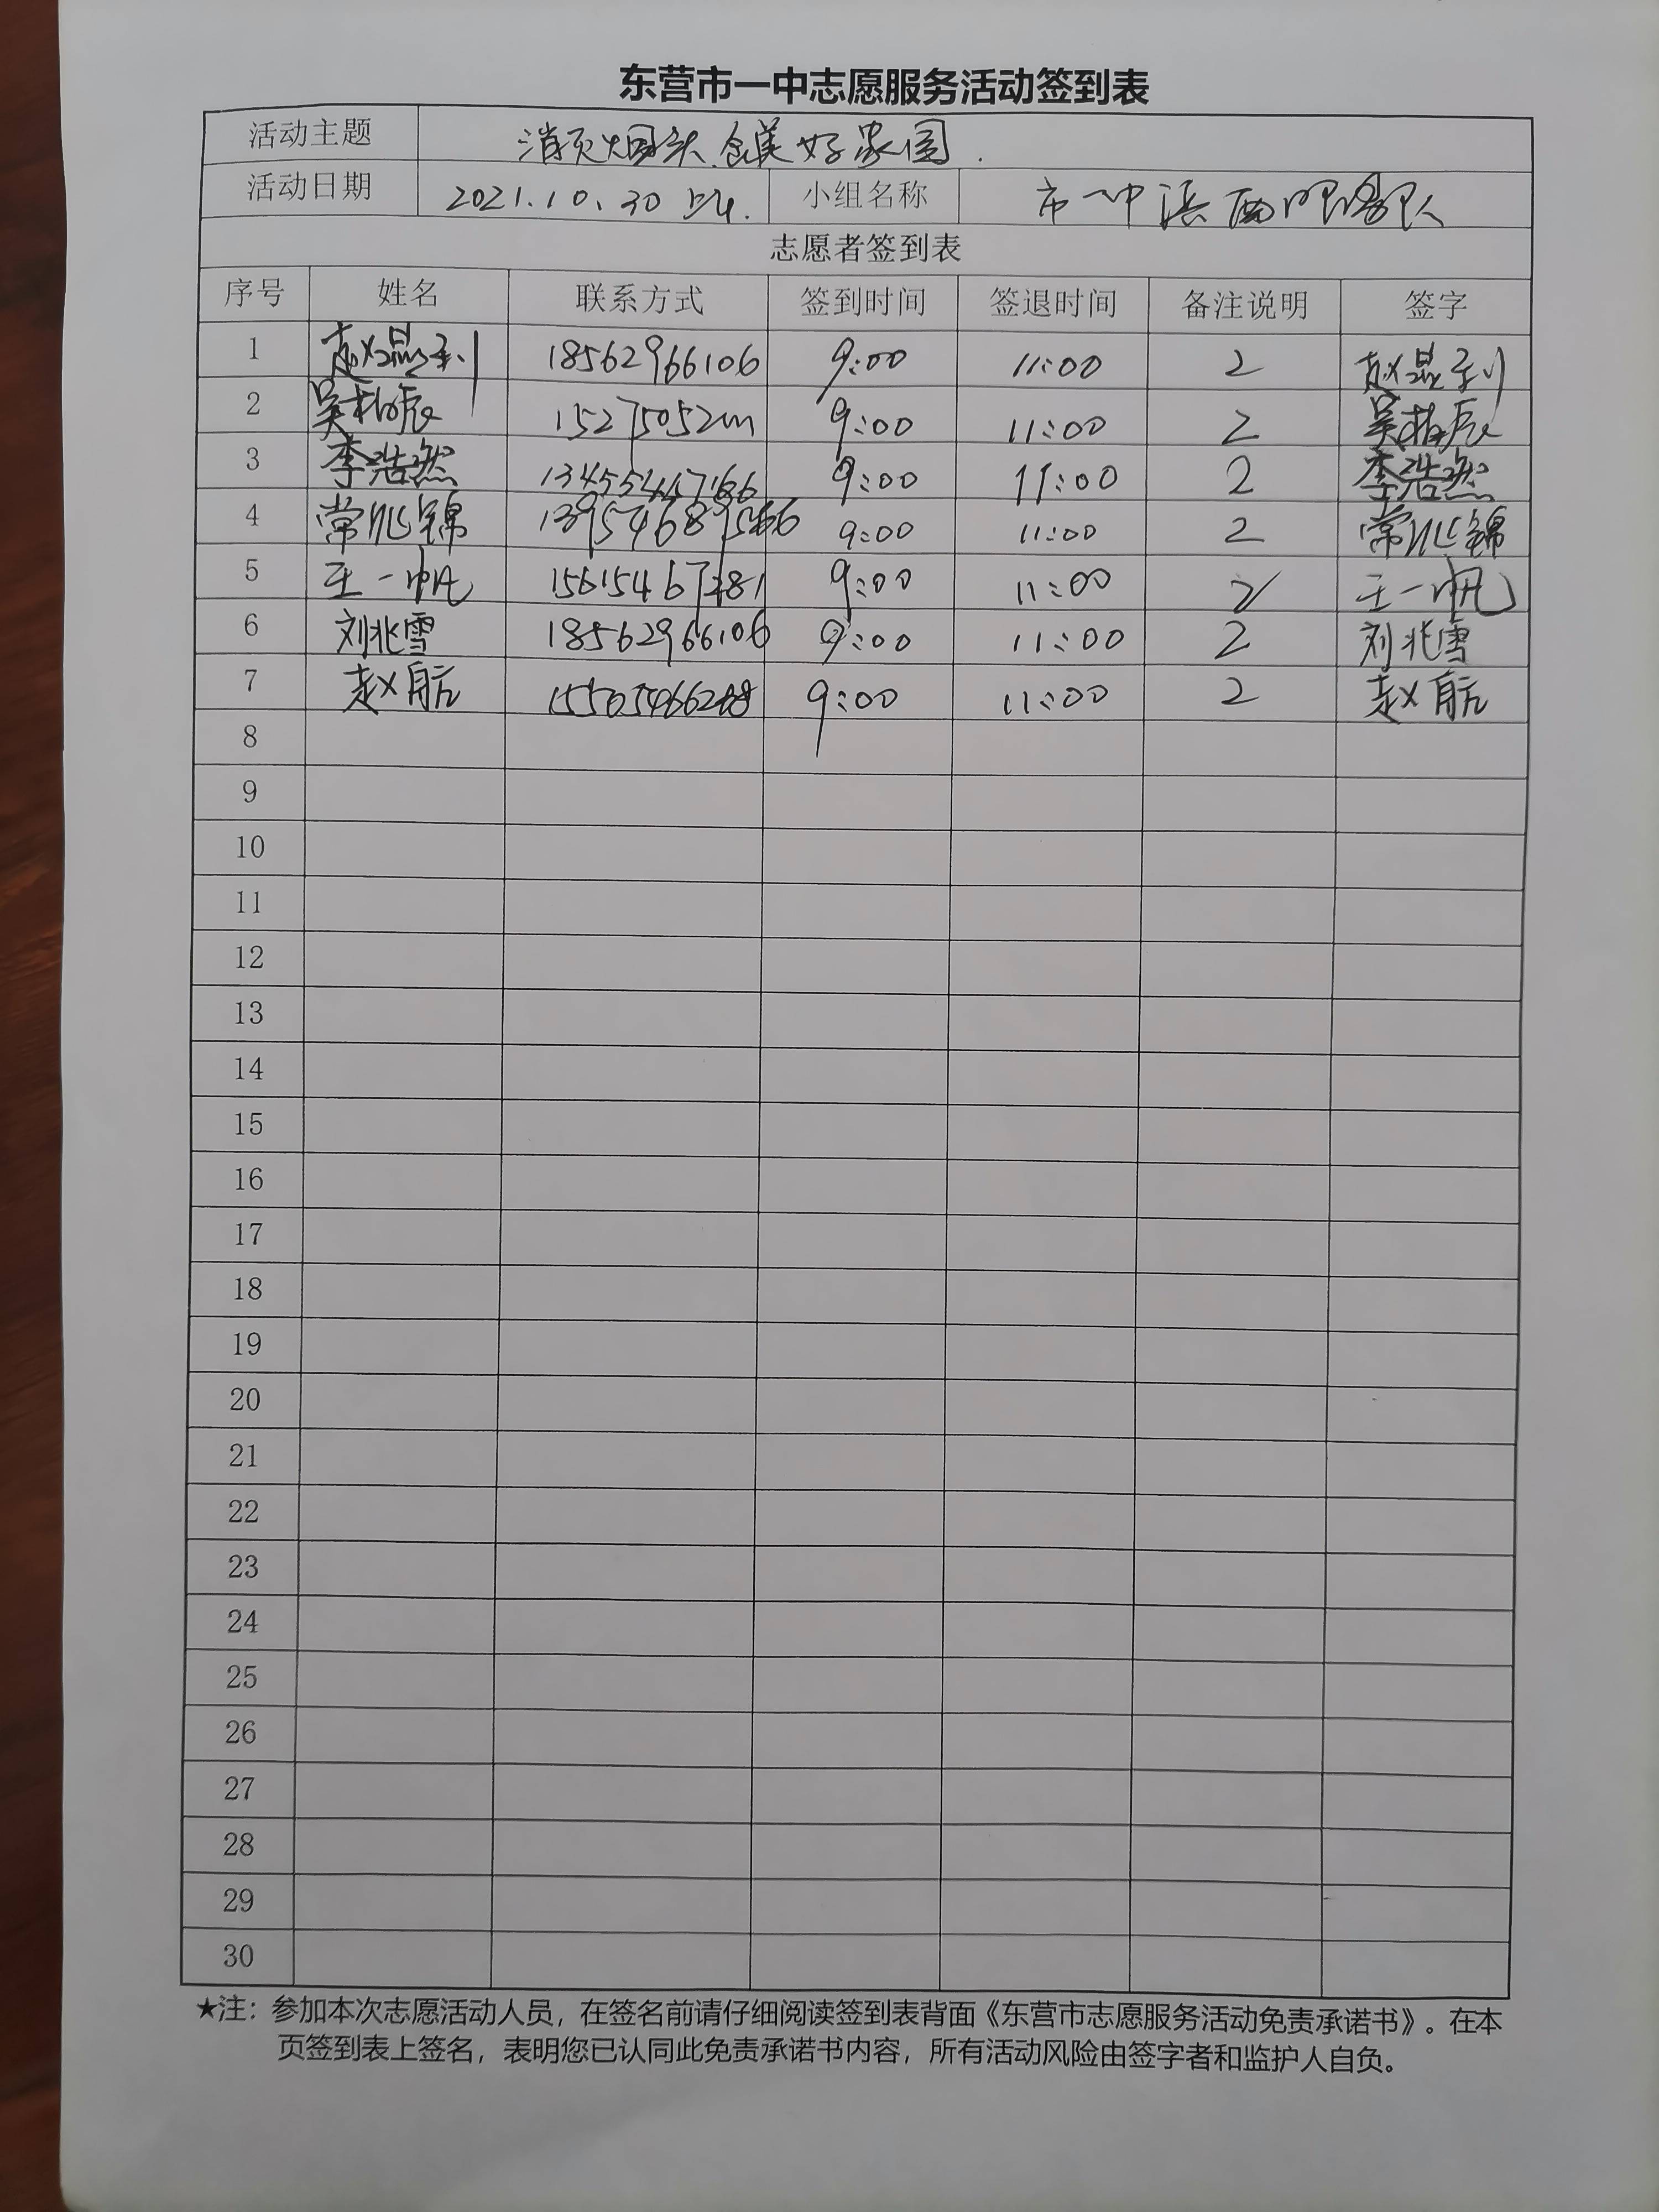 东营市一中志愿服务活动签到表
活动主题 消灭烟头 创美好家园.
活动日期 2021.10.30 上午. 小组名称 市一中滨西
志愿者签到表
序号 姓名 联系方式 签到时间 签退时间 备注说明 签字
1 赵 18562966106 9:00 11:00 2 赵
2 吴柏辰 9:00 11:00 2 吴柏辰
3 李浩然 9:00 11:00 2 李浩然
4 常兆锦 9:00 11:00 2 常兆锦
5 王一帆 15615467281 9:00 11:00 2 王一帆
6 刘兆雪 18562966106 9:00 11:00 2 刘兆雪
7 赵航 9:00 11:00 2 赵航
8
9
10
11
12
13
14
15
16
17
18
19
20
21
22
23
24
25
26
27
28
29
30
★注：参加本次志愿活动人员，在签名前请仔细阅读签到表背面《东营市志愿服务活动免责承诺书》。在本
页签到表上签名，表明您已认同此免责承诺书内容，所有活动风险由签字者和监护人自负。